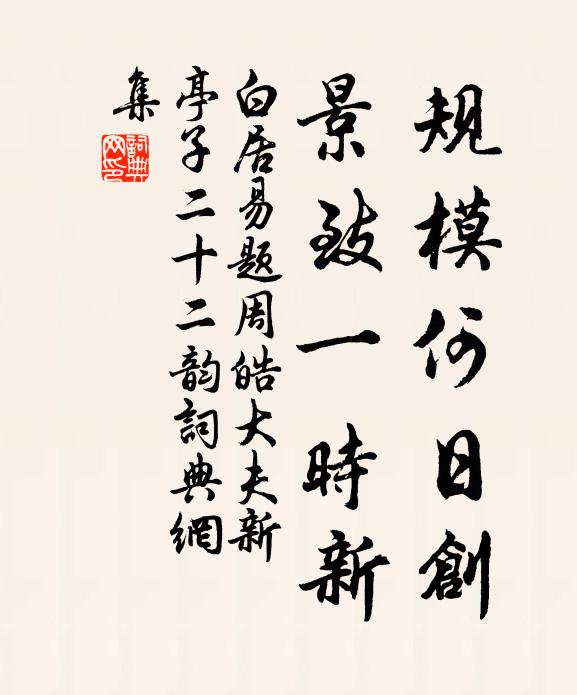 規模何日創
景致一時新
白居易題周皓大夫新
亭子二十二韵詞典網
集
詞典網印